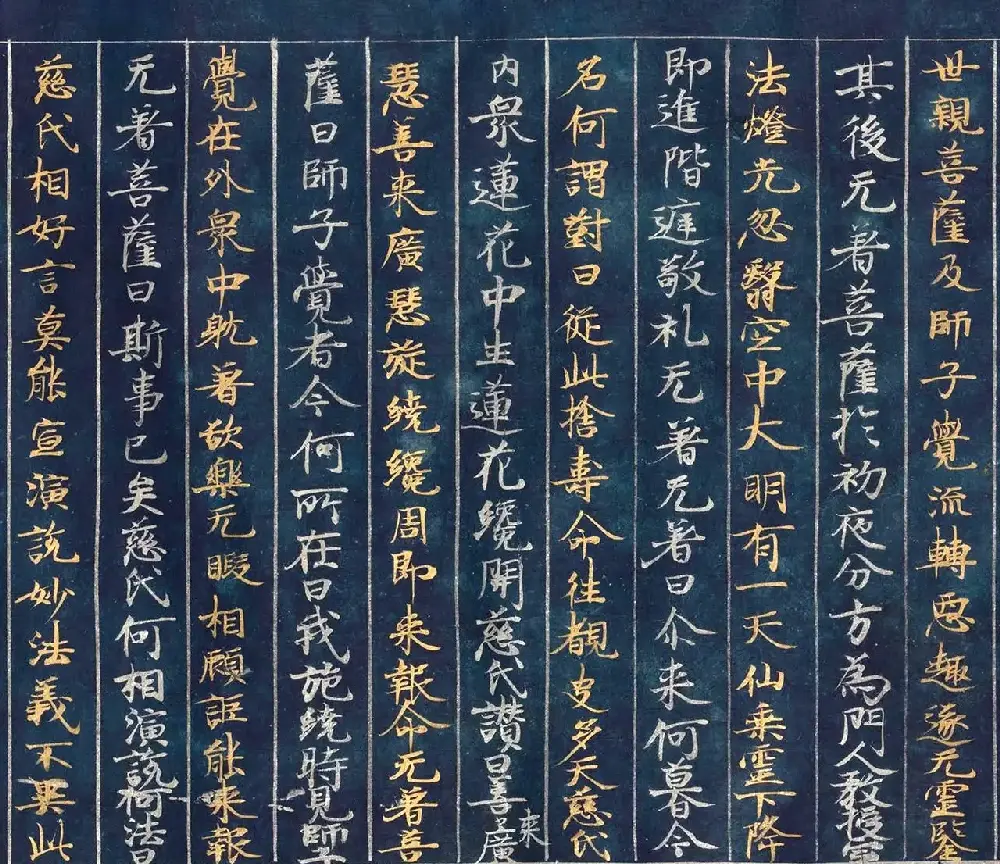 世親菩薩及師子覺流轉惡趣遂无靈鑒
其後无著菩薩於初夜分方為門人教授定
法燈光忽翳空中大明有一天仙乗靈下降
即進階庭敬礼无著无著曰尒来何暮今
名何謂對曰從此捨壽命往覩史多天慈氏
内衆蓮花中生蓮花纔開慈氏讃曰善来廣
慧善来廣慧旋繞纔周即来報命无著菩
薩曰師子覺者今何所在曰我旋繞時見師子
覺在外衆中耽著欲樂无暇相顧詎能来報
无著菩薩曰斯事已矣慈氏何相演說何法曰
慈氏相好言莫能宣演說妙法義不異此